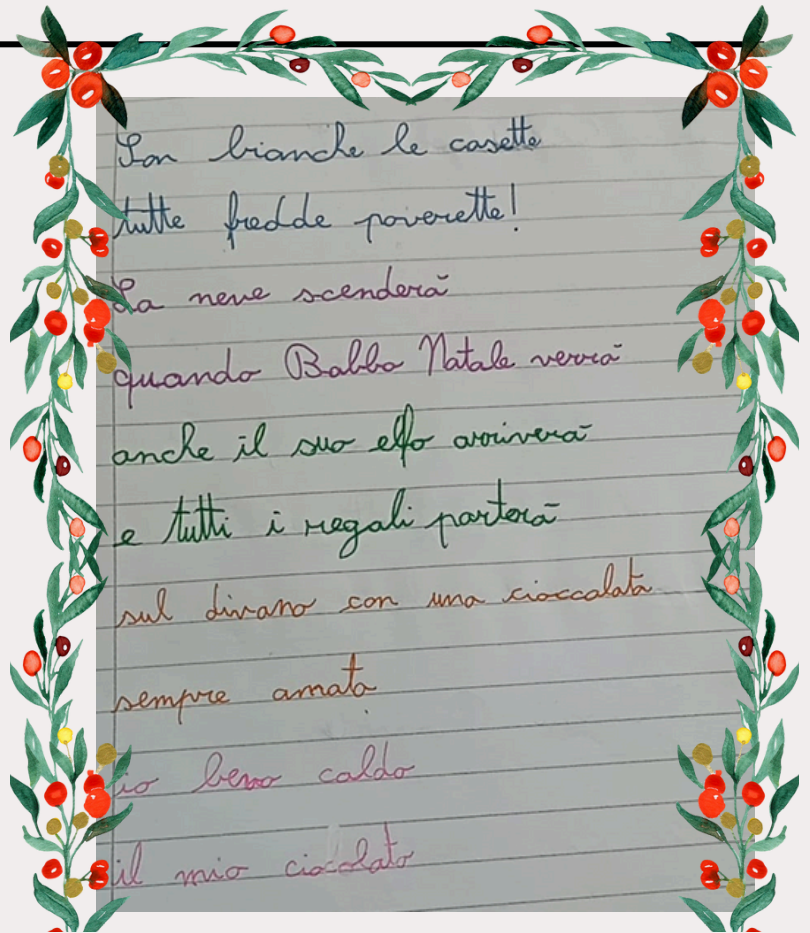 Son bianche le casette
tutte fredde poverette!
La neve scenderà
quando Babbo Natale verrà
anche il suo elfo arriverà
e tutti i regali porterà
sul divano con una cioccolata
sempre amata
io bevo caldo
il mio ciocolato